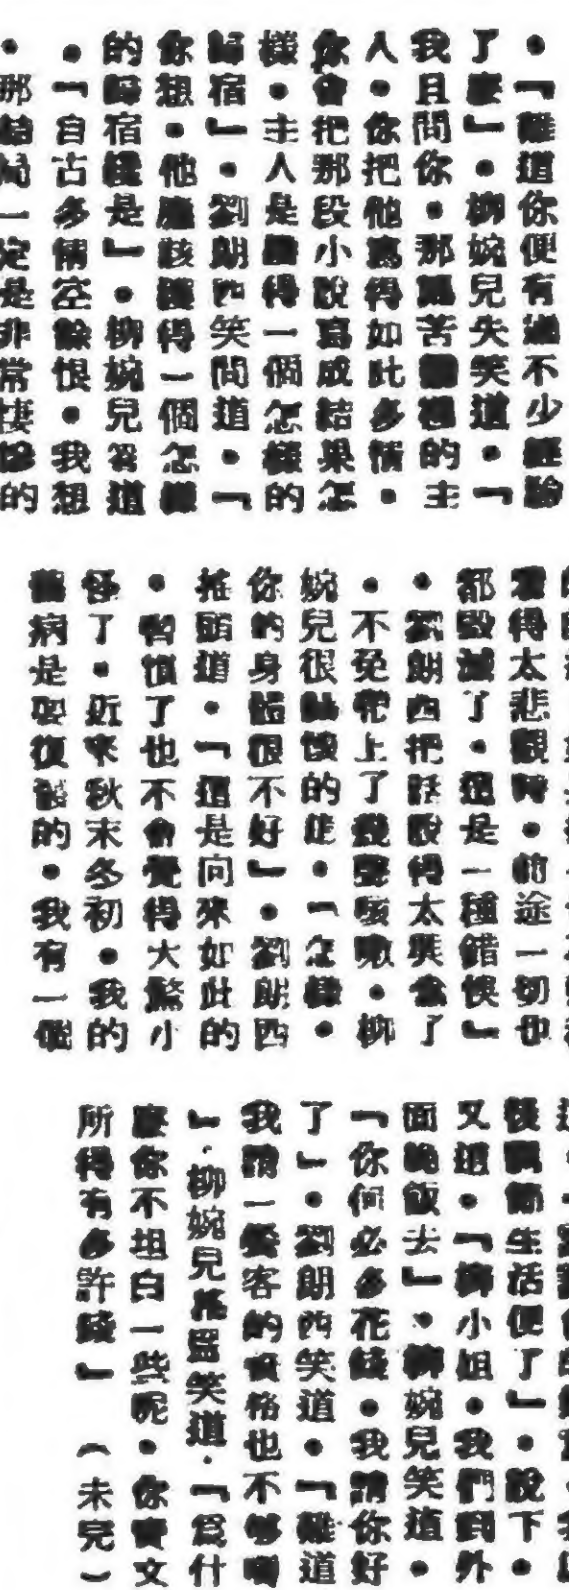 。「難道你便有過不少經驗
了麼」。柳婉兒失笑道。「
我且問你。那篇苦的主
人。你把他寫得如此多情。
你會把那段小說寫成結果怎
樣。主人是獲得一個怎樣的
歸宿」。劉朗四笑問道。「
你想。他應該獲得一個怎樣
的歸宿纔是」。柳婉兒答道
。「自古多情空餘恨。我想
。那結局一定是非常悽慘的
得太悲觀時。前途一切也
都毀滅了。這是一種錯誤」
。劉朗四把話說得太興奮了
。不免帶上了幾聲咳嗽。柳
婉兒很的道。「怎樣。
你的身體很不好」。劉朗四
搖頭道。「這是向來如此的
。習慣了也不會覺得大驚小
怪了。近來秋末冬初。我的
舊病是要復發的。我有一個
後調節生活便了」。說下。
又道。「柳小姐。我們到外
面晚飯去」。柳婉兒笑道。
「你何必多花錢。我請你好
了」。劉朗四笑道。「難道
我請一餐客的資格也不够嗎
」。柳婉兒笑道。「爲什
麼你不坦白一些呢。你賣文
所得有多許錢」（未完）